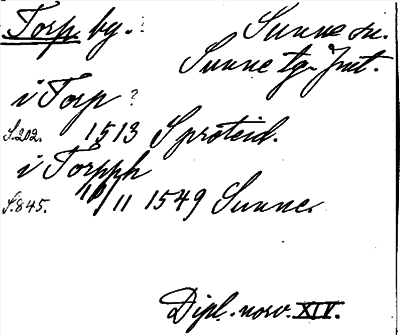 Torp. by. Sunne sn.
Sunne tg. Jmt.
i Torp ?
S. 202. 1513 Sproteid.
i Torpph
S. 845. 10/11 1549 Sunne.
Dipl. norv. XIV.